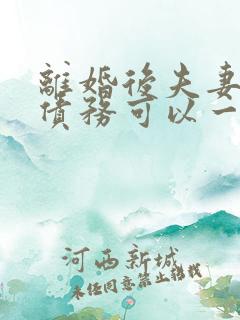 離婚後夫妻
債務可以一
河西新城
未经同意禁止转载